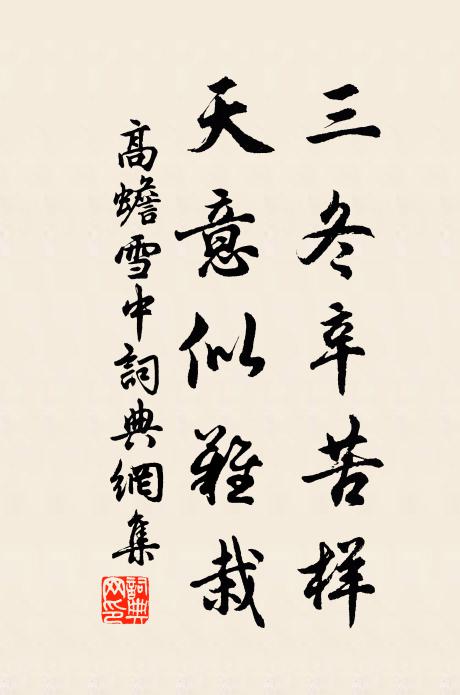 三冬辛苦样
天意似难栽
高蟾雪中詞典網集
詞典网印